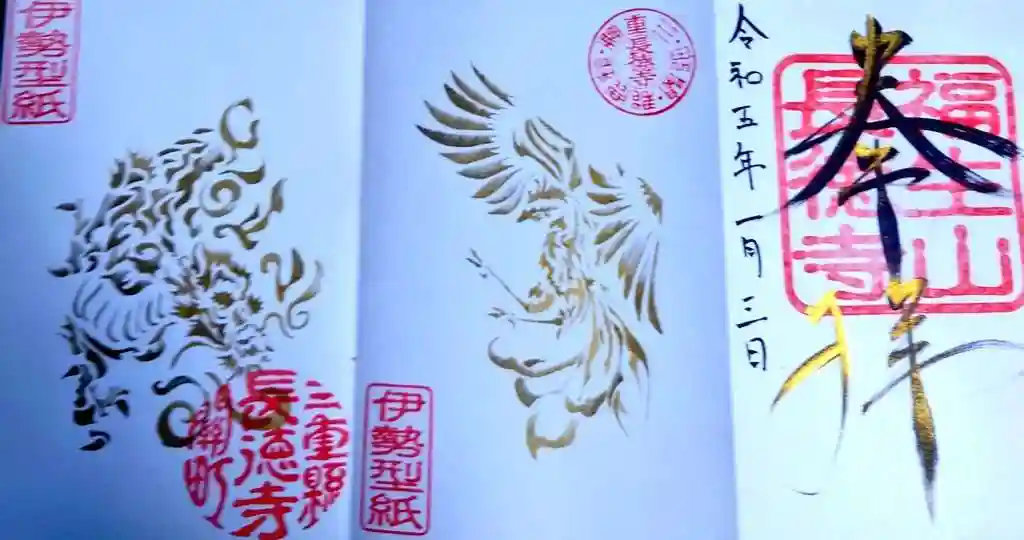 伊勢型紙
三重縣
長徳寺
関町
伊勢型紙
長徳寺
令和五年一月三日
奉拝
福生山
長徳寺